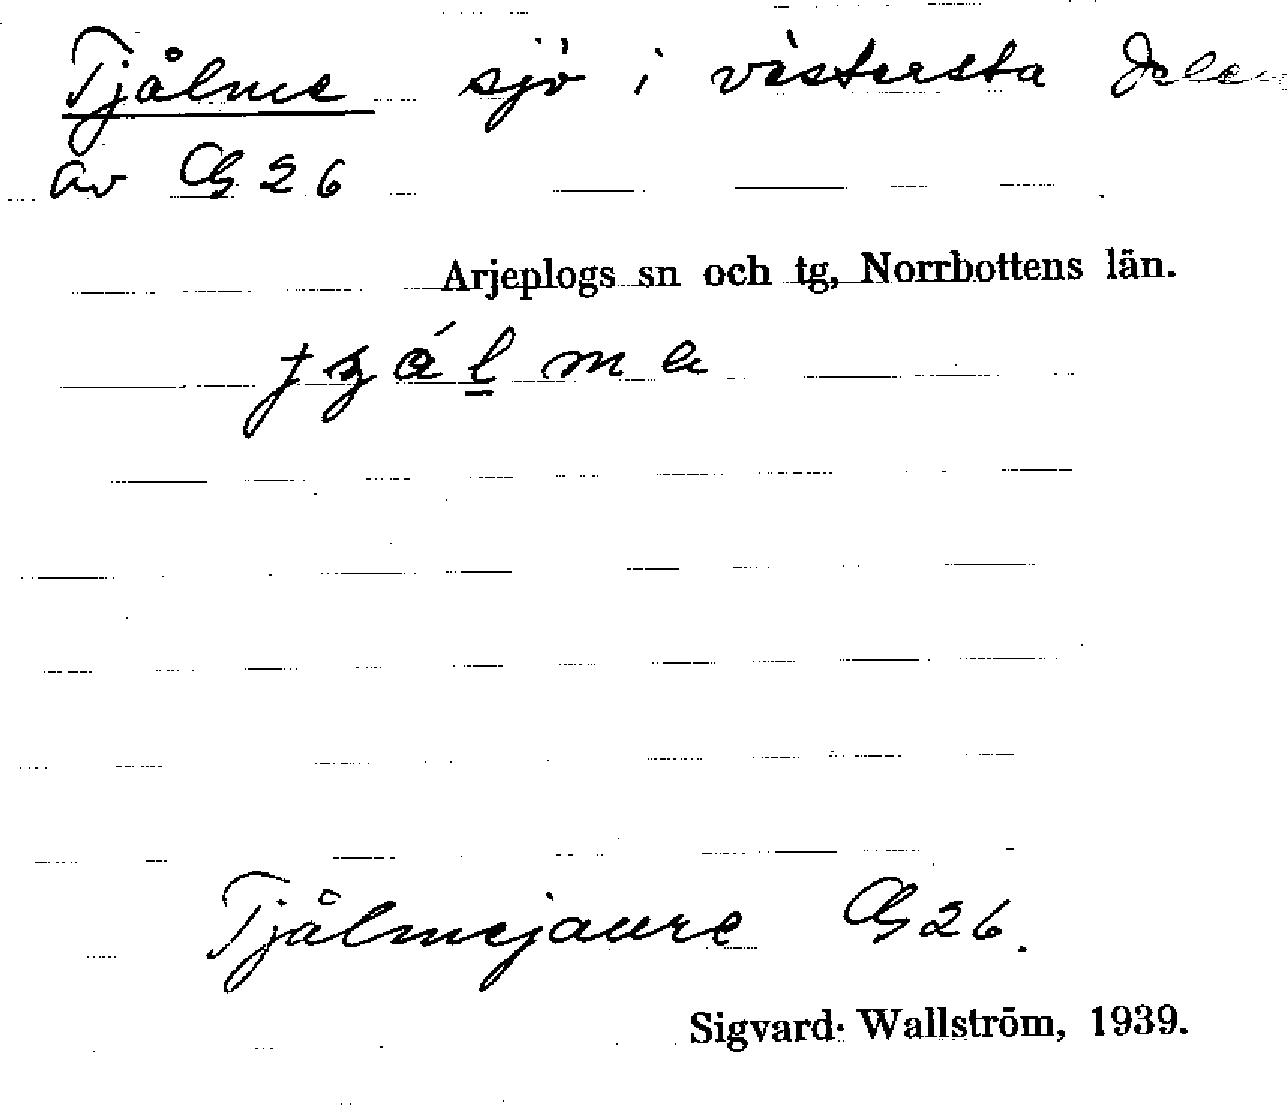 Tjålme sjö i västersta delen
av G 26
Arjeplogs sn och tg, Norrbottens län.
Tjålmejaure G 26.
Sigvard Wallström, 1939.